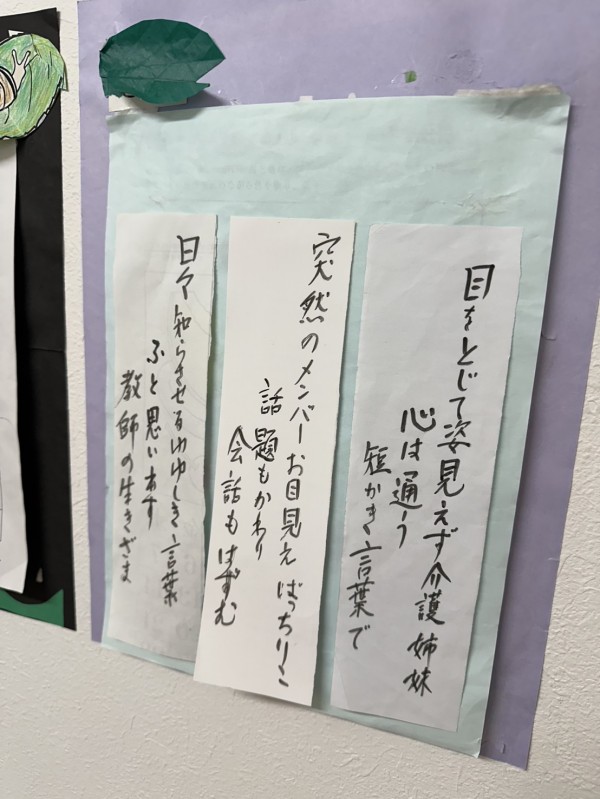 目をとじて姿見えず介護姉妹
心は通う
短かき言葉で
突然のメンバーお目見えばっちりこ
話題もかわり
会話もはずむ
日々知らさせるゆゆしき言葉
ふと思います
教師の生きざま